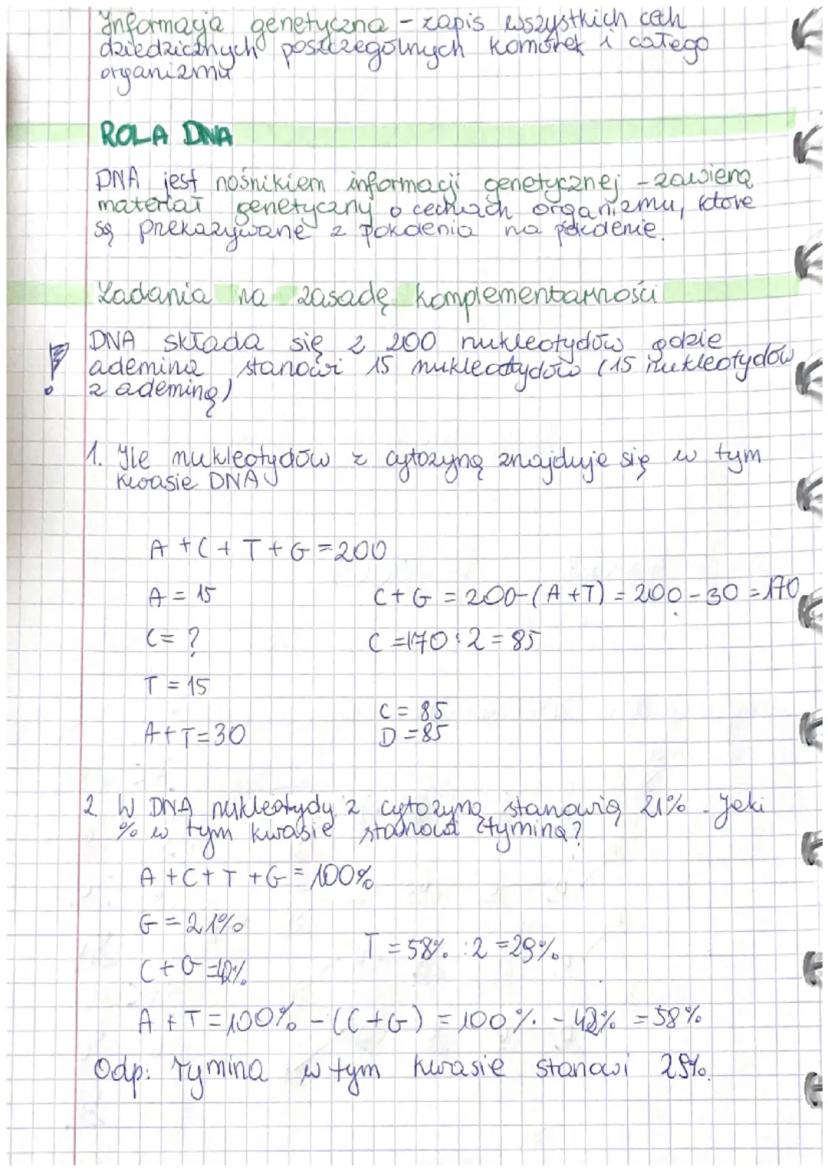 Informacja genetyczna - zapis wszystkich cech
dziedzicznych poszczególnych komórek i całego
organizmu
ROLA DNA
DNA jest nośnikiem informacji genetycznej - zawiera
materiał genetyczny o cechach organizmu, które
są przekazywane z pokolenia na pokolenie.
Zadania na zasadę komplementarności
! DNA składa się z 200 nukleotydów gdzie
ademina stanowi 15 nukleotydów (15 nukleotydów
z ademiną)
1. Ile nukleotydów z cytozyną znajduje się w tym
kwasie DNA
A + C + T + G = 200
A = 15 C + G = 200-(A+T) = 200-30 = 170
C = ? C = 170 : 2 = 85
T = 15
C = 85
A+T=30 D = 85
2. W DNA nukleotydy z cytozyną stanowią 21%. Jaki
% w tym kwasie stanowi tymina?
A + C + T + G = 100%
G = 21%
T = 58% : 2 = 29%
C + G = 42%
A + T = 100% - (C+G) = 100% - 42% = 58%
Odp: Tymina w tym kwasie stanowi 29%.